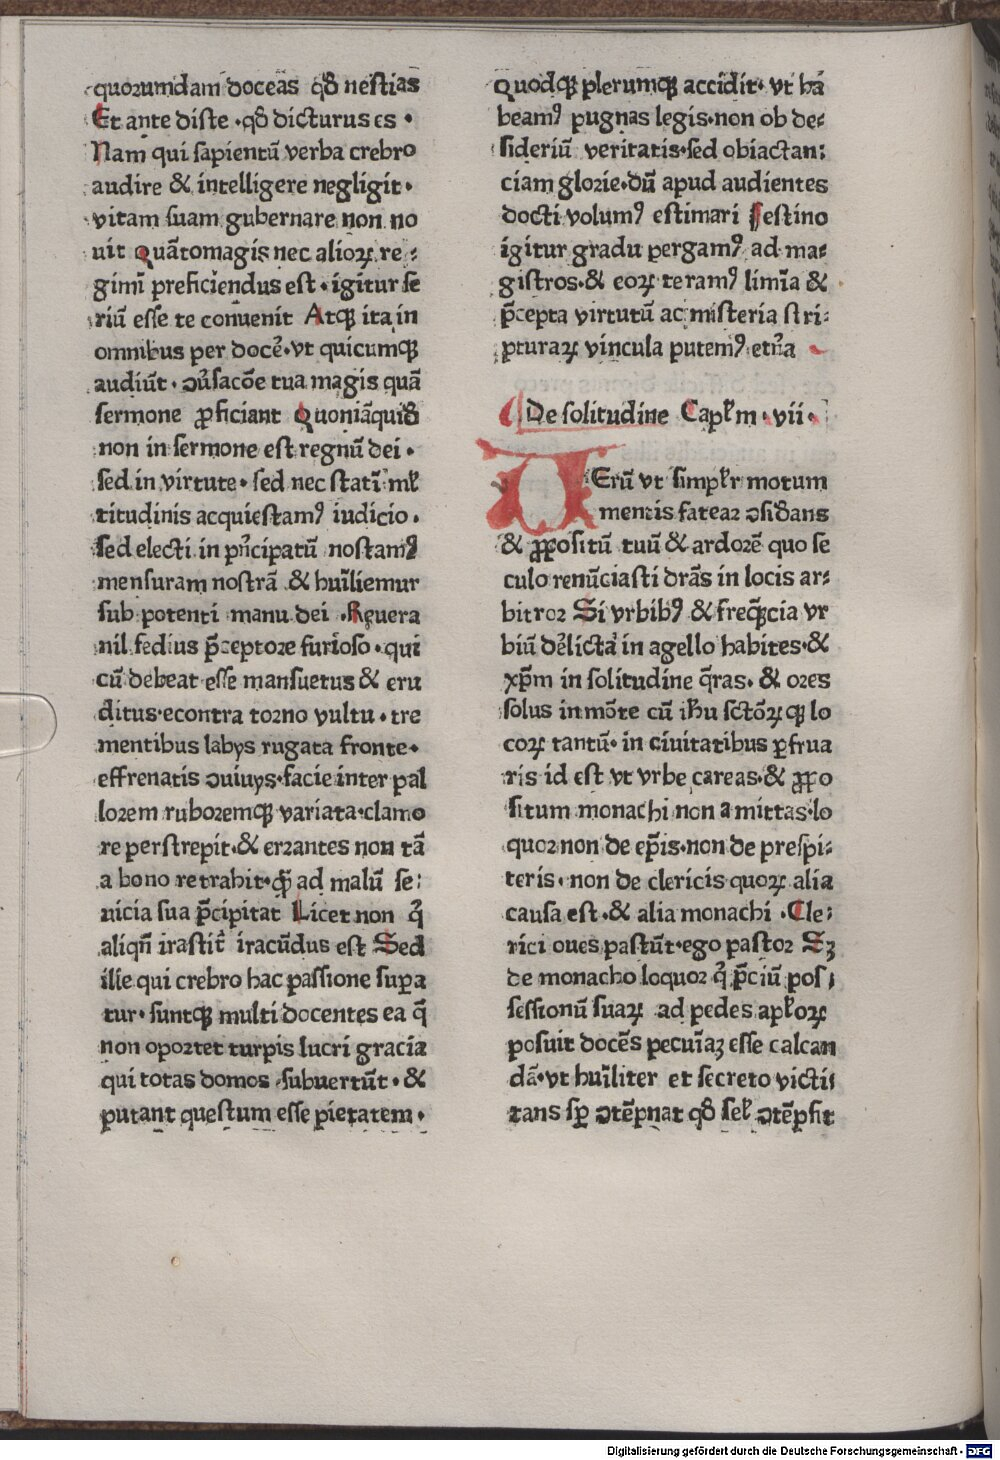 quorumdam doceas qđ nestias
Et ante diste ·qđ dicturus es ·
Nam qui sapientū verba crebro
audire & intelligere negligit·
vitam suam gubernare non no
uit Quātomagis nec alioꝝ re⸗
gimī preficiendus est · igitur se
riū esse te conuenit Atqꝫ ita in
omnibus per docē·vt quicumqꝫ
audiūt · ꝯv̄sacōe tua magis quā
sermone ꝓficiant Quoniāquiđ
non in sermone est regnū dei ·
sed in virtute · sed nec statī ml̄
titudinis acquiestamꝰ iudicio ·
sed electi in pn̄cipatū nostamꝰ
mensuram nostrā & huīliemur
sub potenti manu dei · Reuera
nil fedius p̄ceptore furioso · qui
cū debeat esse mansuetus & eru
ditus·econtra torno vultu · tre
mentibus labys rugata fronte·
effrenatis ꝯuiuys·facie inter pal
lorem ruboremqꝫ variata·clamo
re perstrepit·& errantes non tā
a bono retrahit·qꝫ̄ ad malū se⸗
uicia sua p̄cipitat Licet non q̄
aliqn̄ irastit̄ iracūdus est Sed
ille qui crebro hac passione suꝑa
tur · suntqꝫ multi docentes ea q̄
non oportet turpis lucri gracia
qui totas domos subuertūt · &
putant questum esse pietatem ·
Quodqꝫ plerumqꝫ accidit· vt ha
beamꝰ pugnas legis·non ob de⸗
sideriū veritatis·sed obiactan⸗
ciam glorie·dū apud audientes
docti volumꝰ estimari festino
igitur gradu pergamꝰ ad ma⸗
gistros·& eoꝝ teramꝰ limīa &
p̄cepta virtutū ac misteria stri⸗
pturaꝝ vincula putemꝰ etn̄a
De solitudine Capl̄m · vii ·
UErū vt simpl̄r motum
mentis fatear ꝯsiđans
& ꝓpositū tuū & ardorē quo se
culo renūciasti drās in locis ar⸗
bitror Si vrbibꝰ & freqꝫ̄cia vr
biū dēlicta in agello habites·&
xp̄m in solitudine q̄ras· & ores
solus in mōte cū ih̄u sctōꝝqꝫ lo
coꝝ tantū· in ciuitatibus ꝑfrua
ris id est vt vrbe careas·& ꝓpo
situm monachi non a mittas·lo
quor non de ep̄is·non de prespi⸗
teris · non de clericis quoꝝ alia
causa est·& alia monachi · Cle⸗
rici oues pastūt·ego pastor Sꝫ
de monacho loquor q̄ p̄ciū pos⸗
sessionū suaꝝ ad pedes apl̄oꝝ
posuit docēs pecuīaꝫ esse calcan
dā·vt huīliter et secreto victi⸗
tans sꝑ ꝯtēpnat qđ sel̄ ꝯtēpsit
Digitalisierung gefördert durch die Deutsche Forschungsgemeinschaft - DFG